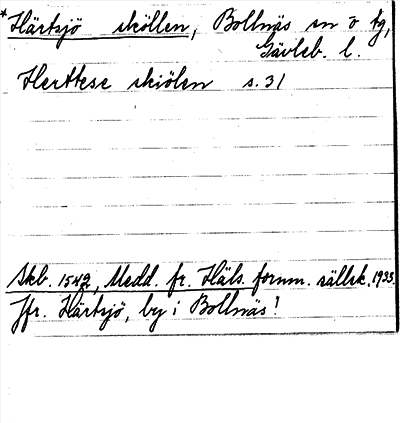 *Härtsjö sköllen, Bollnäs sn o tg,
Gävleb. l.
Herttese skiölen s. 31
Skb. 1542, Medd. fr. Häls. fornm. sällsk. 1935.
Jfr. Härtsjö, by i Bollnäs!